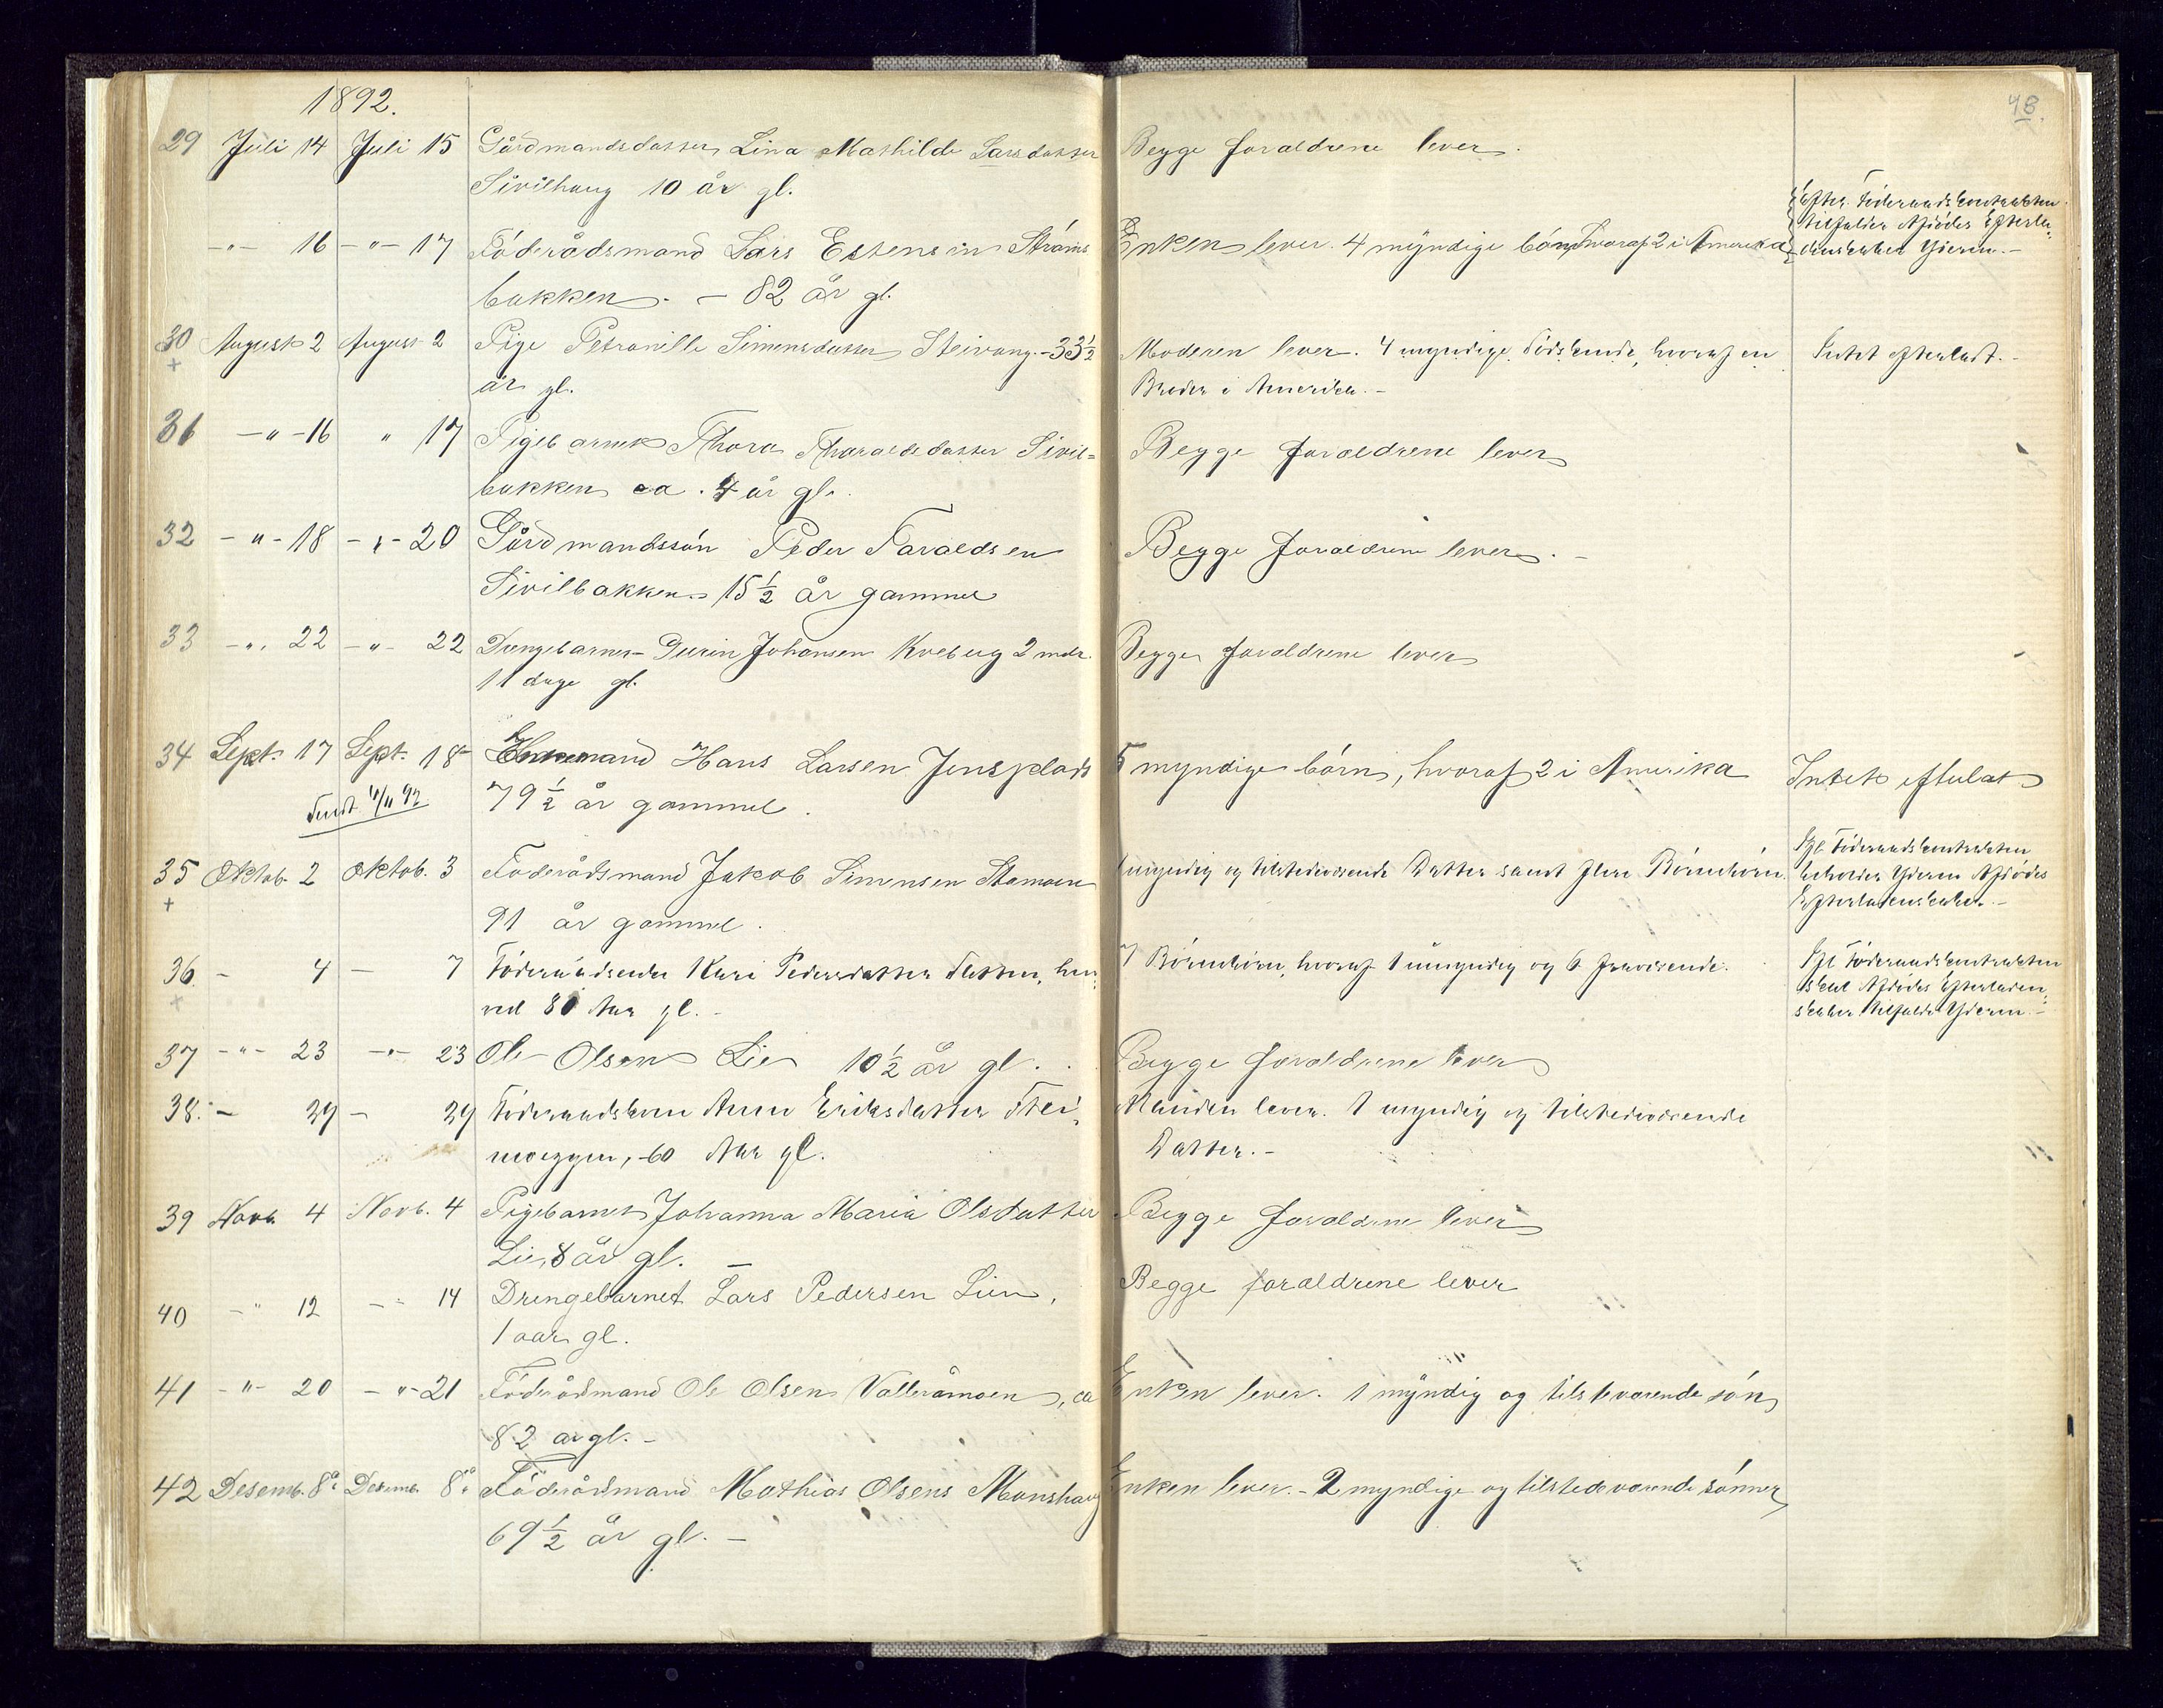 1892.
48.
29 Juli 14 Juli 15 Gårdmandsdatter Lina Mathilde Larsdatter Begge foraldrene lever.
Sivilhaug 10 år gl.
Efter Föderaadskontrakten
tilfalder Afdödes Efterla-
-"- 16 -"- 17 Föderådsmand Lars Estensen Ströms Enken lever. 4 myndige börn, hvoraf 2 i Amerika denskaber Yderen.-
bakken. - 82 år gl.
30 August 2 August 2 Pige Petronille Simensdatter Steivang.-33½ Moderen lever. 4 myndige Södskende, hvoraf en Intet efterladt.-
+ år gl. Broder i Amerika.-
31 -"-16 " 17 Pigebarnet Thora Tharaldsdatter Sivil=
bakken ca. 4 år gl. Begge foraldrene lever
32 -"-18 -"-20 Gårdmandssön Peder Taraldsen Begge foraldrene lever.-
Sivilbakken 15½ år gammel
33 -"- 22 -"- 22 Drengebarnet Johansen Kveberg 2 mdr. Begge foraldrene lever
11 dage gl.
34 Sept. 17 Sept. 18 Enkemand Hans Larsen Jensplads 5 myndige börn, hvoraf 2 i Amerika Intet efterlat
11/11 92 79½ år gammel.
35 Oktob. 2 Oktob. 3 Föderådsmand Jakob Simensen Stamoen 1 myndig og tilstedeværende Datter samt flere Börnebörn. Ifl Föderaadskontrakten
beholder Yderen Afdödes
+ 91 år gammel. Efterladenskaber.-
36 - 4 - 7 Föderaadsenke Kari Pedersdatter Flatten, hen- 7 Börnebörn, hvoraf 1 umyndig og 6 fraværende. Ifl Föderaadskontrakten
skal Afdödes Efterladen-
+ ved 80 Aar gl.- skaber tilfalde Yderen.-
37 -"- 23 -"- 23 Ole Olsen Lie 10½ år gl. Begge foraldrene lever
38. - 29 - 29 Föderaadskone Anne Eriksdatter Manden lever. 1 myndig og tilstedeværende
60 Aar gl. Datter.-
39 Novb. 4 Novb. 4 Pigebarnet Johanna Maria Olsdatter Begge foraldrene lever
Lie, 8 år gl. -
40 -"- 12 -"- 14 Drengebarnet Lars Pedersen Lien, Begge foraldrene lever
1 aar gl.
41 -"- 20 -"-21 Föderådmand Ole Olsen Vollråmoen, ca Enken lever. 1 myndig og tilsteværende sön
82 ar gl.-
42 Desemb. 8de Desemb. 8de Föderådmand Mathias Olsens Monshaug Enken lever.- 2 myndige og tilstedeværende sönner
69½ år gl.-